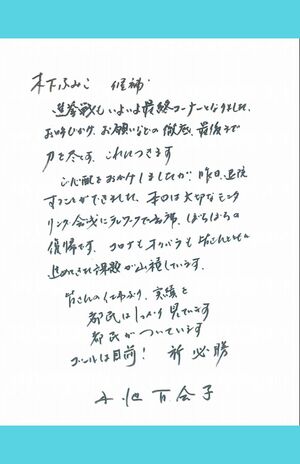 木下ふみこ 候補
選挙戦もいよいよ最終コーナーとなりました。
お呼びかけ、お願いなどの徹底、最後まで
力を尽す、これにつきます
ご心配をおかけしましたが、昨日、退院
することができました。本日は大切なモニタ
リング会議にテレワークで出席、ぼちぼちの
復帰です。コロナもオリパラも皆さんとともに
進めてきた課題が山積しています。
皆さんの仕事ぶり、実績を
都民はしっかり見ています
都民がついています
ゴールは目前! 祈必勝
小池百合子